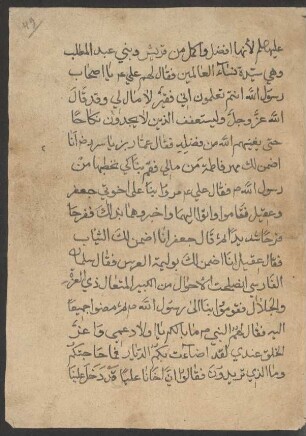 عليهم لأنها افضل واكمل من قريش وبني عبد المطلب
وهي سيدة نساء العالمين فقال لهم علي ع يا اصحاب
رسول الله انتم تعلمون اني فقير لا مال لي وقد قال
الله عز وجل وليستعفف الذين لا يجدون نكاحا
حتى يغنيهم الله من فضله فقال عمار بن ياسر رض انا
اضمن لك مهر فاطمة من مالي فقم بنا كي نخطبها من
رسول الله ص فقال علي ع مروا بنا على اخوتي جعفر
وعقيل فقاموا واتوا اليهما واخبروهما بذلك ففرحا
فرحا شديدا ثم قال جعفر انا اضمن لك الثياب
فقال عقيل انا ضمن لك بوليمة العرس فقال سلمان
الفارسي اصلحت الاحوال من الكبير المتعال ذي العزة
والجلال فقوموا بنا الى رسول الله ص ثم مضوا جميعا
اليه فقال لهم النبي ص مرحبا بكم يا اولاد عمي واعز
الخلق عندي لقد اضاءت بكم الديار فما حاجتكم
وما الذي تريدون فقالوا ان اخانا عليا قد دخل علينا